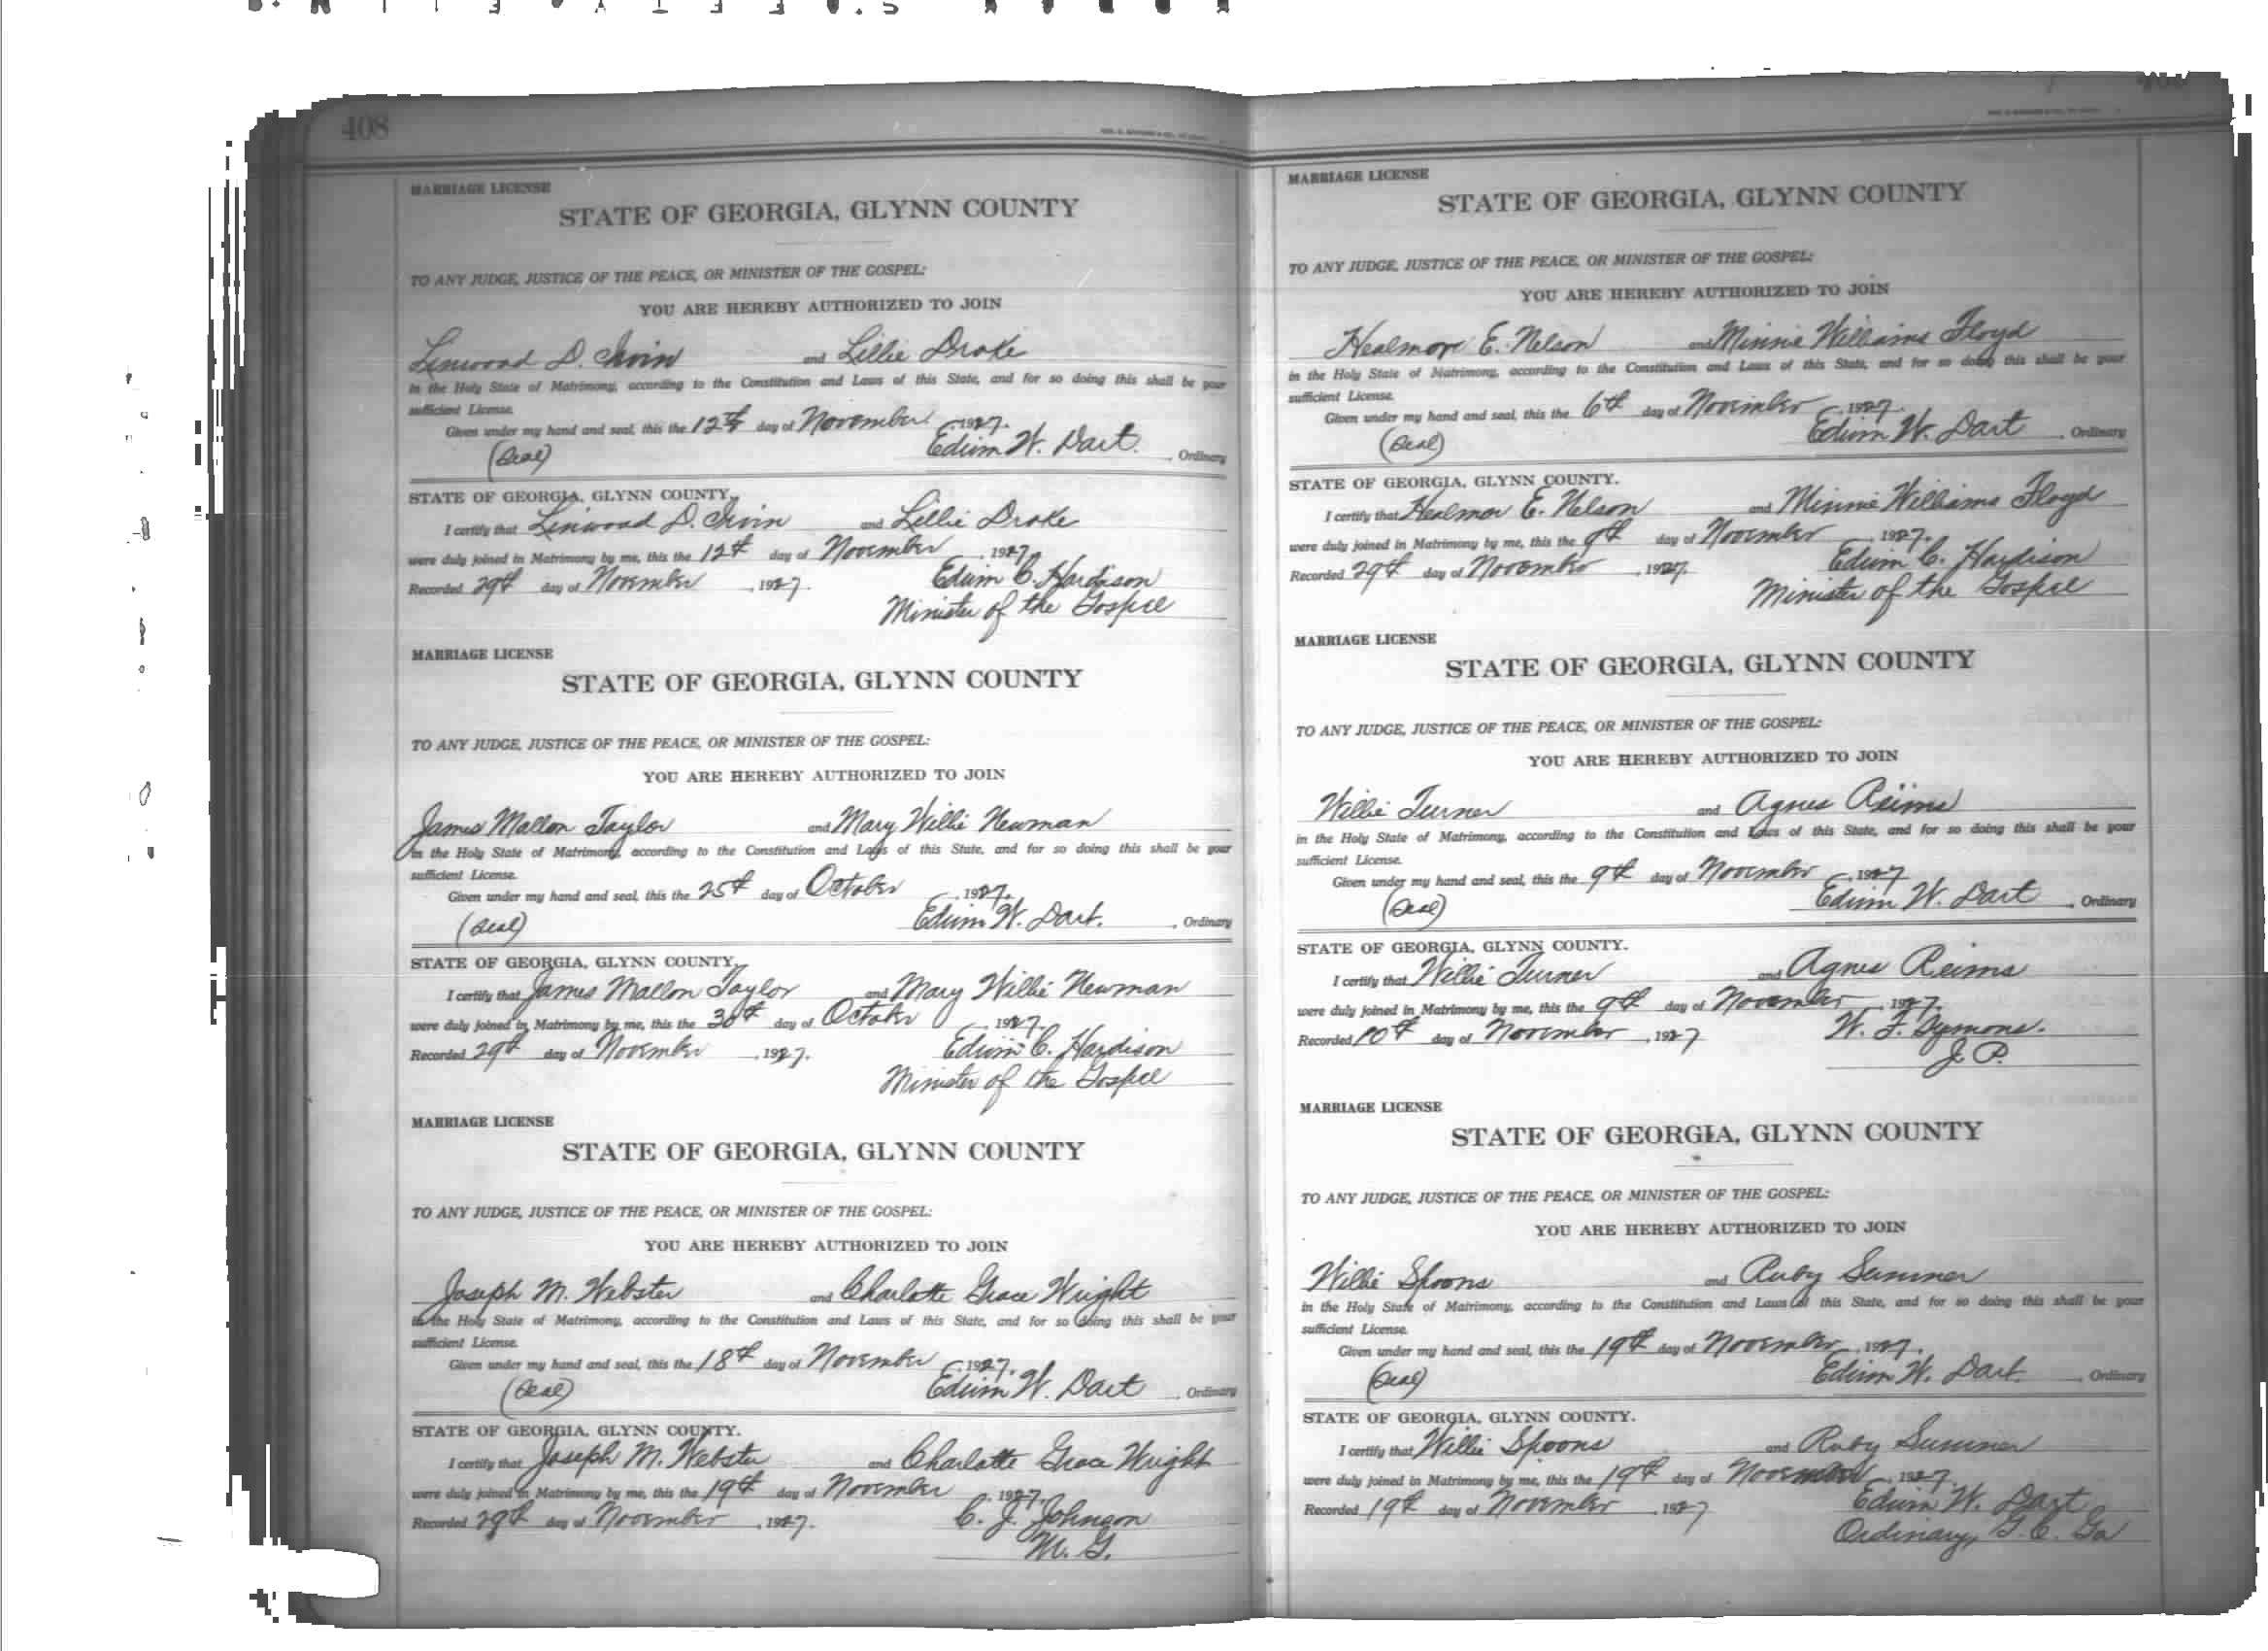 408
MARRIAGE LICENSE
STATE OF GEORGIA, GLYNN COUNTY
TO ANY JUDGE, JUSTICE OF THE PEACE, OR MINISTER OF THE GOSPEL:
YOU ARE HEREBY AUTHORIZED TO JOIN
Linwood D. Irvin and Lillie Drake
in the Holy State of Matrimony, according to the Constitution and Laws of this State, and for so doing this shall be your
sufficient License.
Given under my hand and seal, this the 12th day of November, 1927.
(Seal) Edwin W. Dart, Ordinary
STATE OF GEORGIA, GLYNN COUNTY.
I certify that Linwood D. Irvin and Lillie Drake
were duly joined in Matrimony by me, this the 12th day of November, 1927
Recorded 29th day of November, 1927. Edwin C. Hardison
Minister of the Gospel
MARRIAGE LICENSE
STATE OF GEORGIA, GLYNN COUNTY
TO ANY JUDGE, JUSTICE OF THE PEACE, OR MINISTER OF THE GOSPEL:
YOU ARE HEREBY AUTHORIZED TO JOIN
James Mallon Taylor and Mary Willie Newman
in the Holy State of Matrimony, according to the Constitution and Laws of this State, and for so doing this shall be your
sufficient License.
Given under my hand and seal, this the 25th day of October, 1927.
(Seal) Edwin W. Dart. , Ordinary
STATE OF GEORGIA, GLYNN COUNTY.
I certify that James Mallon Taylor and Mary Willie Newman
were duly joined in Matrimony by me, this the 30th day of October, 1927.
Recorded 29th day of November, 1927. Edwin C. Hardison
Minister of the Gospel
MARRIAGE LICENSE
STATE OF GEORGIA, GLYNN COUNTY
TO ANY JUDGE, JUSTICE OF THE PEACE, OR MINISTER OF THE GOSPEL:
YOU ARE HEREBY AUTHORIZED TO JOIN
Joseph M. Webster and Charlotte Grace Wright
in the Holy State of Matrimony, according to the Constitution and Laws of this State, and for so doing this shall be your
sufficient License.
Given under my hand and seal, this the 18th day of November, 1927.
(Seal) Edwin W. Dart, Ordinary
STATE OF GEORGIA, GLYNN COUNTY.
I certify that Joseph M. Webster and Charlotte Grace Wright
were duly joined in Matrimony by me, this the 19th day of November, 1927.
Recorded 29th day of November, 1927. C. J. Johnson
M. G.
MARRIAGE LICENSE
STATE OF GEORGIA, GLYNN COUNTY
TO ANY JUDGE, JUSTICE OF THE PEACE, OR MINISTER OF THE GOSPEL:
YOU ARE HEREBY AUTHORIZED TO JOIN
E. Nelson and Minnie Williams Floyd
in the Holy State of Matrimony, according to the Constitution and Laws of this State, and for so doing this shall be your
sufficient License.
Given under my hand and seal, this the 6th day of November, 1927.
(Seal) Edwin W. Dart, Ordinary
STATE OF GEORGIA, GLYNN COUNTY.
I certify that E. Nelson and Minnie Williams Floyd
were duly joined in Matrimony by me, this the 9th day of November, 1927.
Recorded 29th day of November, 1927. Edwin C. Hardison
Minister of the Gospel
MARRIAGE LICENSE
STATE OF GEORGIA, GLYNN COUNTY
TO ANY JUDGE, JUSTICE OF THE PEACE, OR MINISTER OF THE GOSPEL:
YOU ARE HEREBY AUTHORIZED TO JOIN
Willie Turner and Agnes Reims
in the Holy State of Matrimony, according to the Constitution and Laws of this State, and for so doing this shall be your
sufficient License.
Given under my hand and seal, this the 9th day of November, 1927
(Seal) Edwin W. Dart, Ordinary
STATE OF GEORGIA, GLYNN COUNTY.
I certify that Willie Turner and Agnes Reims
were duly joined in Matrimony by me, this the 9th day of November, 1927.
Recorded 10th day of November, 1927 W. F. Symons.
J. P.
MARRIAGE LICENSE
STATE OF GEORGIA, GLYNN COUNTY
TO ANY JUDGE, JUSTICE OF THE PEACE, OR MINISTER OF THE GOSPEL:
YOU ARE HEREBY AUTHORIZED TO JOIN
Willie Spoons and Ruby Sumner
in the Holy State of Matrimony, according to the Constitution and Laws of this State, and for so doing this shall be your
sufficient License.
Given under my hand and seal, this the 19th day of November, 1927.
(Seal) Edwin W. Dart. , Ordinary
STATE OF GEORGIA, GLYNN COUNTY.
I certify that Willie Spoons and Ruby Sumner
were duly joined in Matrimony by me, this the 19th day of November, 1927.
Recorded 19th day of November, 1927 Edwin W. Dart
Ordinary, G. C. Ga